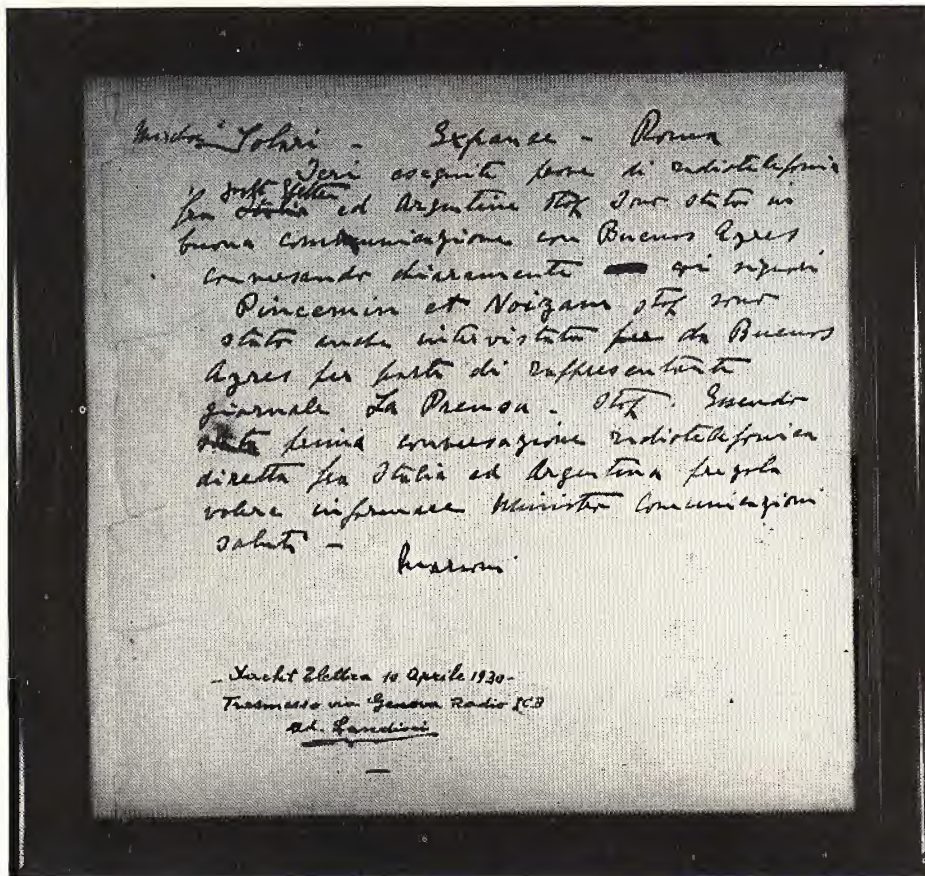 Solari - Expanse - Roma
Ieri eseguite prove di radiotelefonia
Yacht Elettra
fra Italia ed Argentina stop Sono stato in
buona communicazione con Buenos Ayres
conversando chiaramente coi signori
Pincemin et Noizam stop sono
stato anche intervistato per da Buenos
Ayres per parte di rappresentante
giornale La Prensa - stop. Essendo
prima conversazione radiotelefonica
diretta fra Italia ed Argentina pregola
volere informare Ministro Comunicazioni
saluti -
Marconi
- Yacht Elettra 10 Aprile 1930 -
Trasmesso via Genova Radio ICB
Ad. Landini